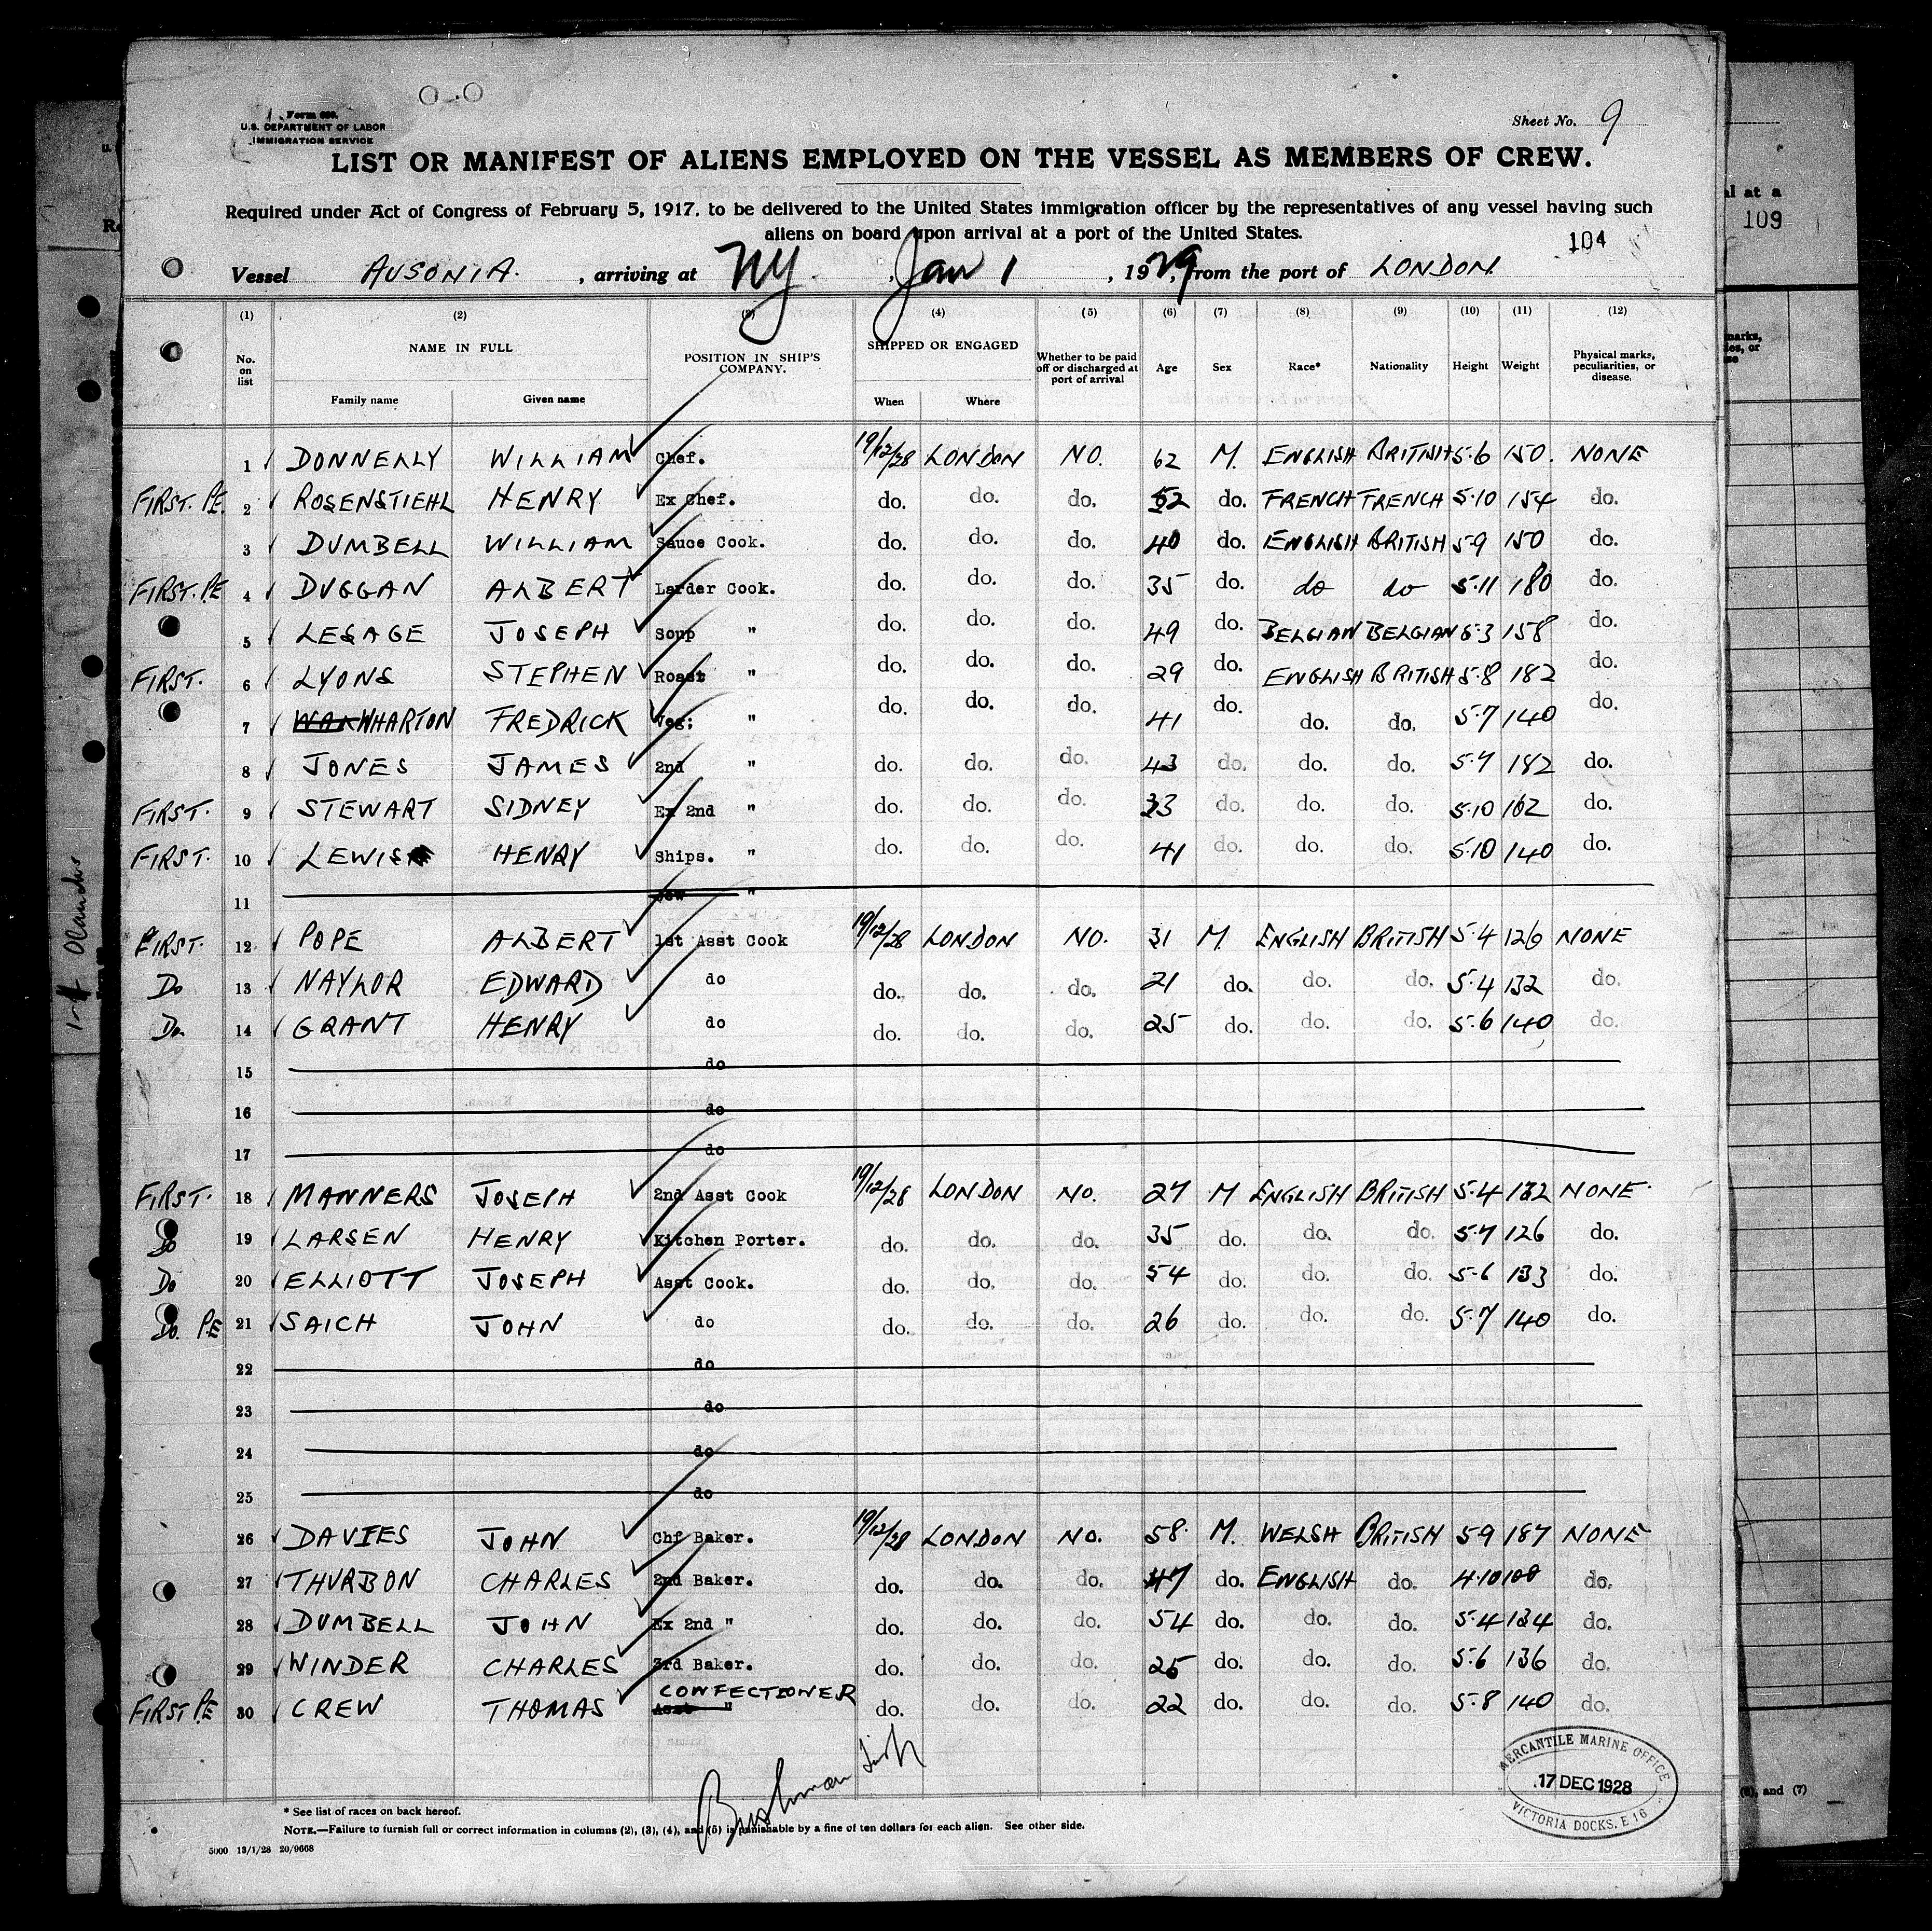 Form 680.
U.S. DEPARTMENT OF LABOR
IMMIGRATION SERVICE
Sheet No. 9
LIST OR MANIFEST OF ALIENS EMPLOYED ON THE VESSEL AS MEMBERS OF CREW.
Required under Act of Congress of February 5, 1917, to be delivered to the United States immigration officer by the representatives of any vessel having such
aliens on board upon arrival at a port of the United States.
104
al at a
109
Vessel AUSONIA. , arriving at NY. , Jan 1 , 1929, from the port of LONDON.
(1) (2) (3) (4) (5) (6) (7) (8) (9) (10) (11) (12)
No. on list NAME IN FULL POSITION IN SHIP'S COMPANY. SHIPPED OR ENGAGED Whether to be paid off or discharged at port of arrival Age Sex Race* Nationality Height Weight Physical marks, peculiarities, or disease.
Family name Given name When Where
1 DONNELLY WILLIAM Chef. 19/12/28 LONDON NO. 62 M. ENGLISH BRITISH 5·6 150. NONE
FIRST. PE. 2 ROSENSTIEHL HENRY Ex Chef. do. do. do. 52 do. FRENCH FRENCH 5·10 154 do.
3 DUMBELL WILLIAM Sauce Cook. do. do. do. 40 do. ENGLISH BRITISH 5·9 150 do.
FIRST. PE 4 DUGGAN ALBERT Larder Cook. do. do. do. 35 do. do do 5·11 180 do.
5 LESAGE JOSEPH Soup " do. do. do. 49 do. BELGIAN BELGIAN 5·3 158 do.
FIRST. 6 LYONS STEPHEN Roast " do. do. do. 29 do. ENGLISH BRITISH 5·8 182 do.
7 WHARTON FREDRICK Veg; " do. do. do. 41 do. do. do. 5·7 140 do.
8 JONES JAMES 2nd " do. do. do. 43 do. do. do. 5·7 182 do.
FIRST. 9 STEWART SIDNEY Ex 2nd " do. do. do. 33 do. do. do. 5·10 162 do.
FIRST. 10 LEWIS HENRY Ships. " do. do. do. 41 do. do. do. 5·10 140 do.
11 "
FIRST. 12 POPE ALBERT 1st Asst Cook 19/12/28 LONDON NO. 31 M. ENGLISH BRITISH 5·4 126 NONE
Do 13 NAYLOR EDWARD do do. do. do. 21 do. do. do. 5·4 132 do.
Do. 14 GRANT HENRY do do. do. do. 25 do. do. do. 5·6 140 do.
15 do
16 do
17 do
FIRST. 18 MANNERS JOSEPH 2nd Asst Cook 19/12/28 LONDON NO. 27 M ENGLISH BRITISH 5·4 132 NONE
Do 19 LARSEN HENRY Kitchen Porter. do. do. do. 35 do. do. do. 5·7 126 do.
Do 20 ELLIOTT JOSEPH Asst Cook. do. do. do. 54 do. do. do. 5·6 133 do.
Do. PE 21 SAICH JOHN do do. do. do. 26 do. do. do. 5·7 140 do.
22 do
23 do
24 do
25 do
26 DAVIES JOHN Chf Baker. 19/12/28 LONDON NO. 58. M. WELSH BRITISH 5·9 187 NONE
27 THURBON CHARLES 2nd Baker. do. do. do. 47 do. ENGLISH do. 4·10 108 do.
28 DUMBELL JOHN Ex 2nd " do. do. do. 54 do. do. do. 5·4 134 do.
29 WINDER CHARLES 3rd Baker. do. do. do. 25 do. do. do. 5·6 136 do.
CONFECTIONER
FIRST PE 30 CREW THOMAS Asst " do. do. do. 22 do. do. do. 5·8 140 do.
MERCANTILE MARINE OFFICE
17 DEC 1928
VICTORIA DOCKS. E 16
(6), and (7)
* See list of races on back hereof.
NOTE.—Failure to furnish full or correct information in columns (2), (3), (4), and (5) is punishable by a fine of ten dollars for each alien. See other side.
5000 13/1/28 20/9668